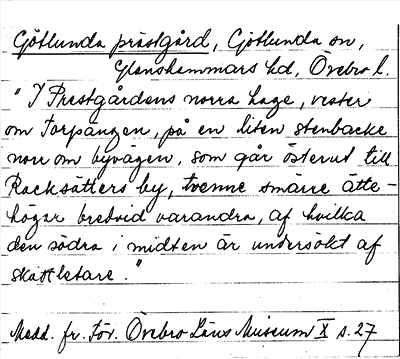 Götlunda prästgård, Götlunda sn,
Glanshammars hd, Örebro l.
"I Prestgårdens norra hage, vester
om Torpängen, på en liten stenbacke
norr om byvägen, som går österut till
Racksätters by, tvenne smärre ätte-
högar bredvid varandra, af hvilka
den södra i midten är undersökt af
skattletare."
Medd. fr. För. Örebro Läns Museum X s. 27